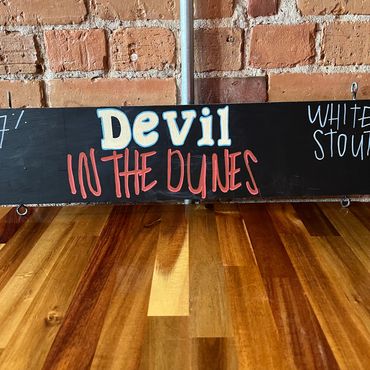 7%
Devil
IN THE DUNES
WHITE
STOUT